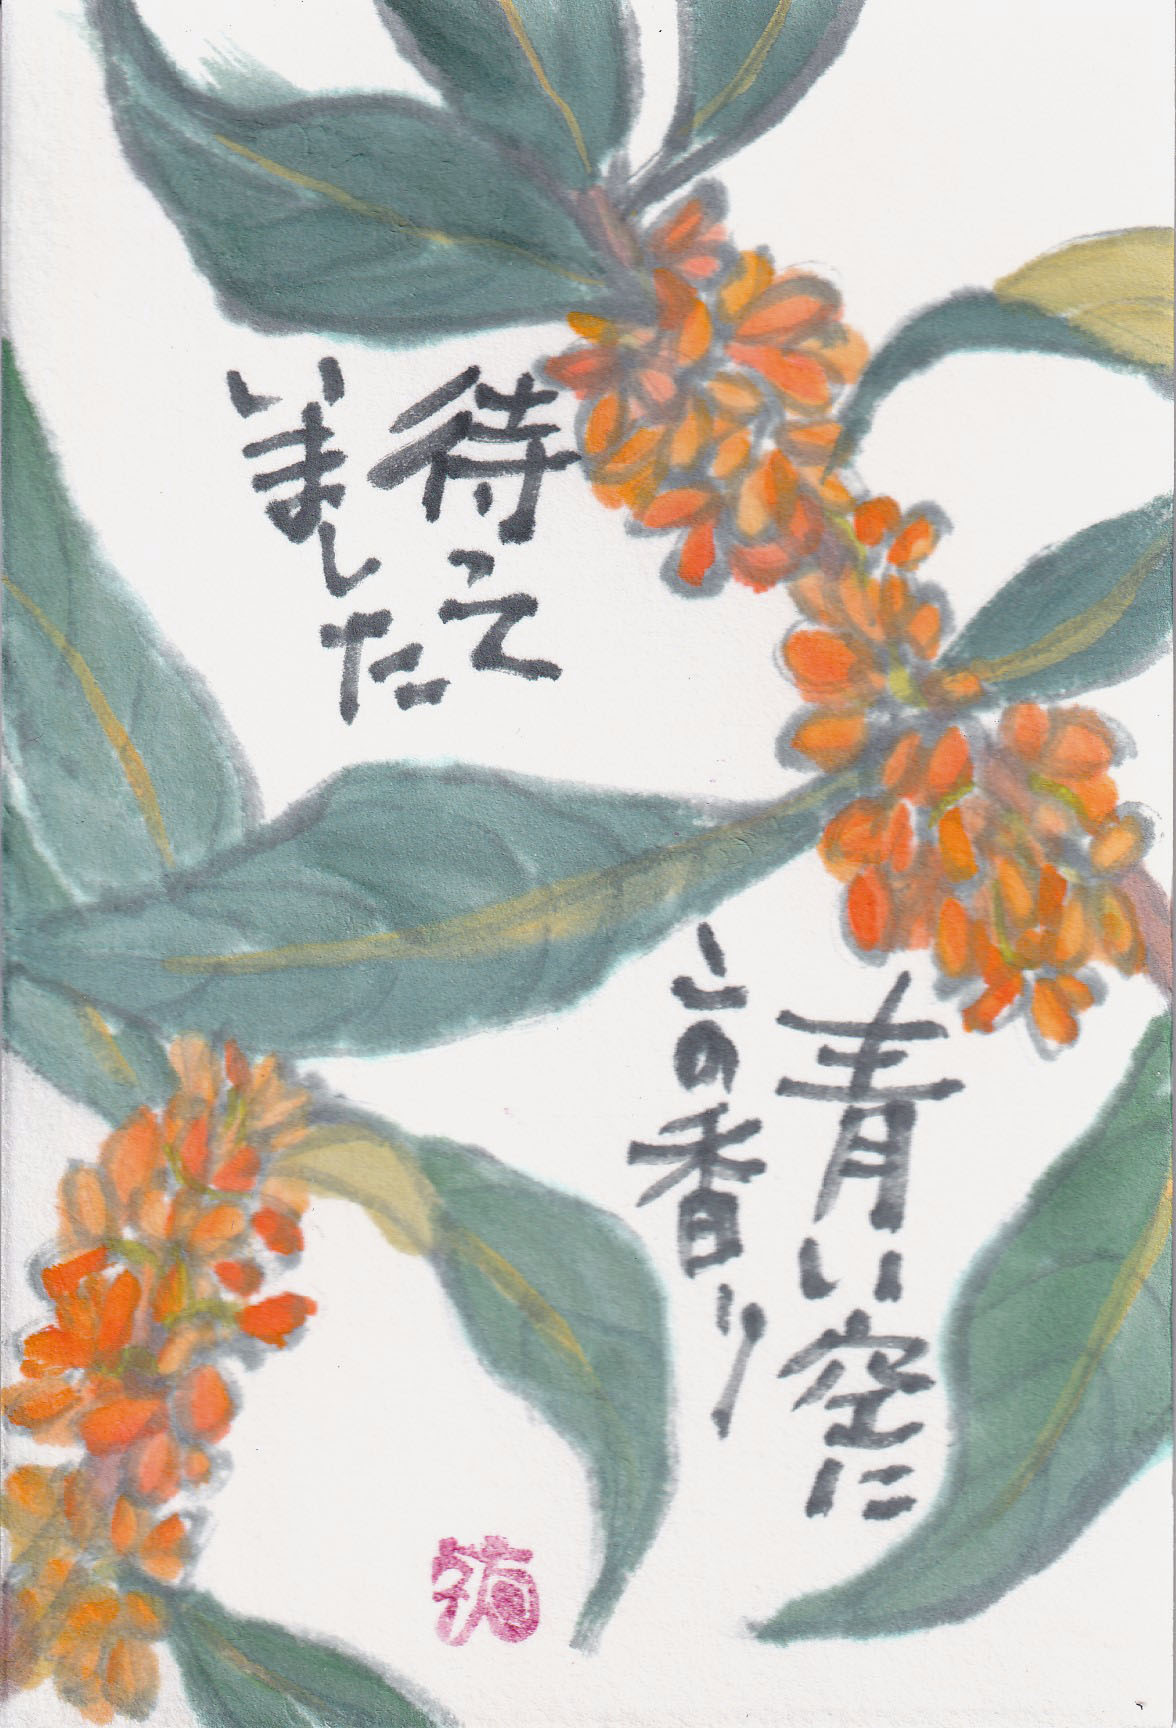 青い空に
この香り
待って
いました